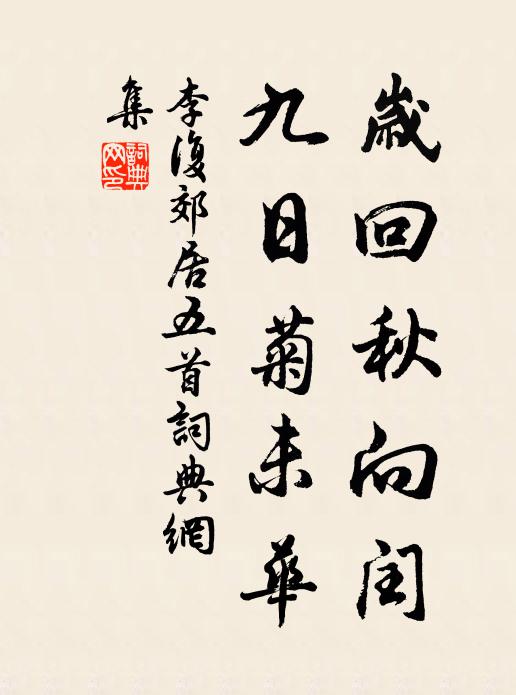 歲回秋向閏
九日菊未華
李復郊居五首詞典網
集
詞典網印